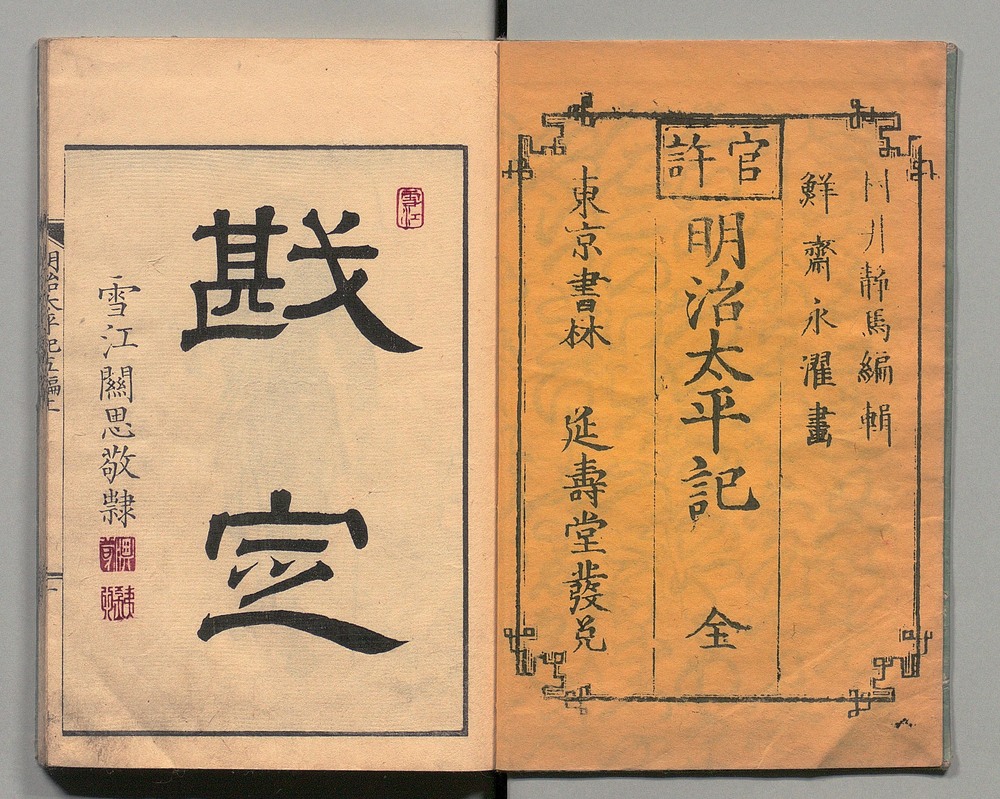 官許
村井静馬編輯
鮮齋永濯畫
明治太平記 全
東京書林 延壽堂發兌
雪江
戡定
雪江關思敬隷
明治太平記五編上